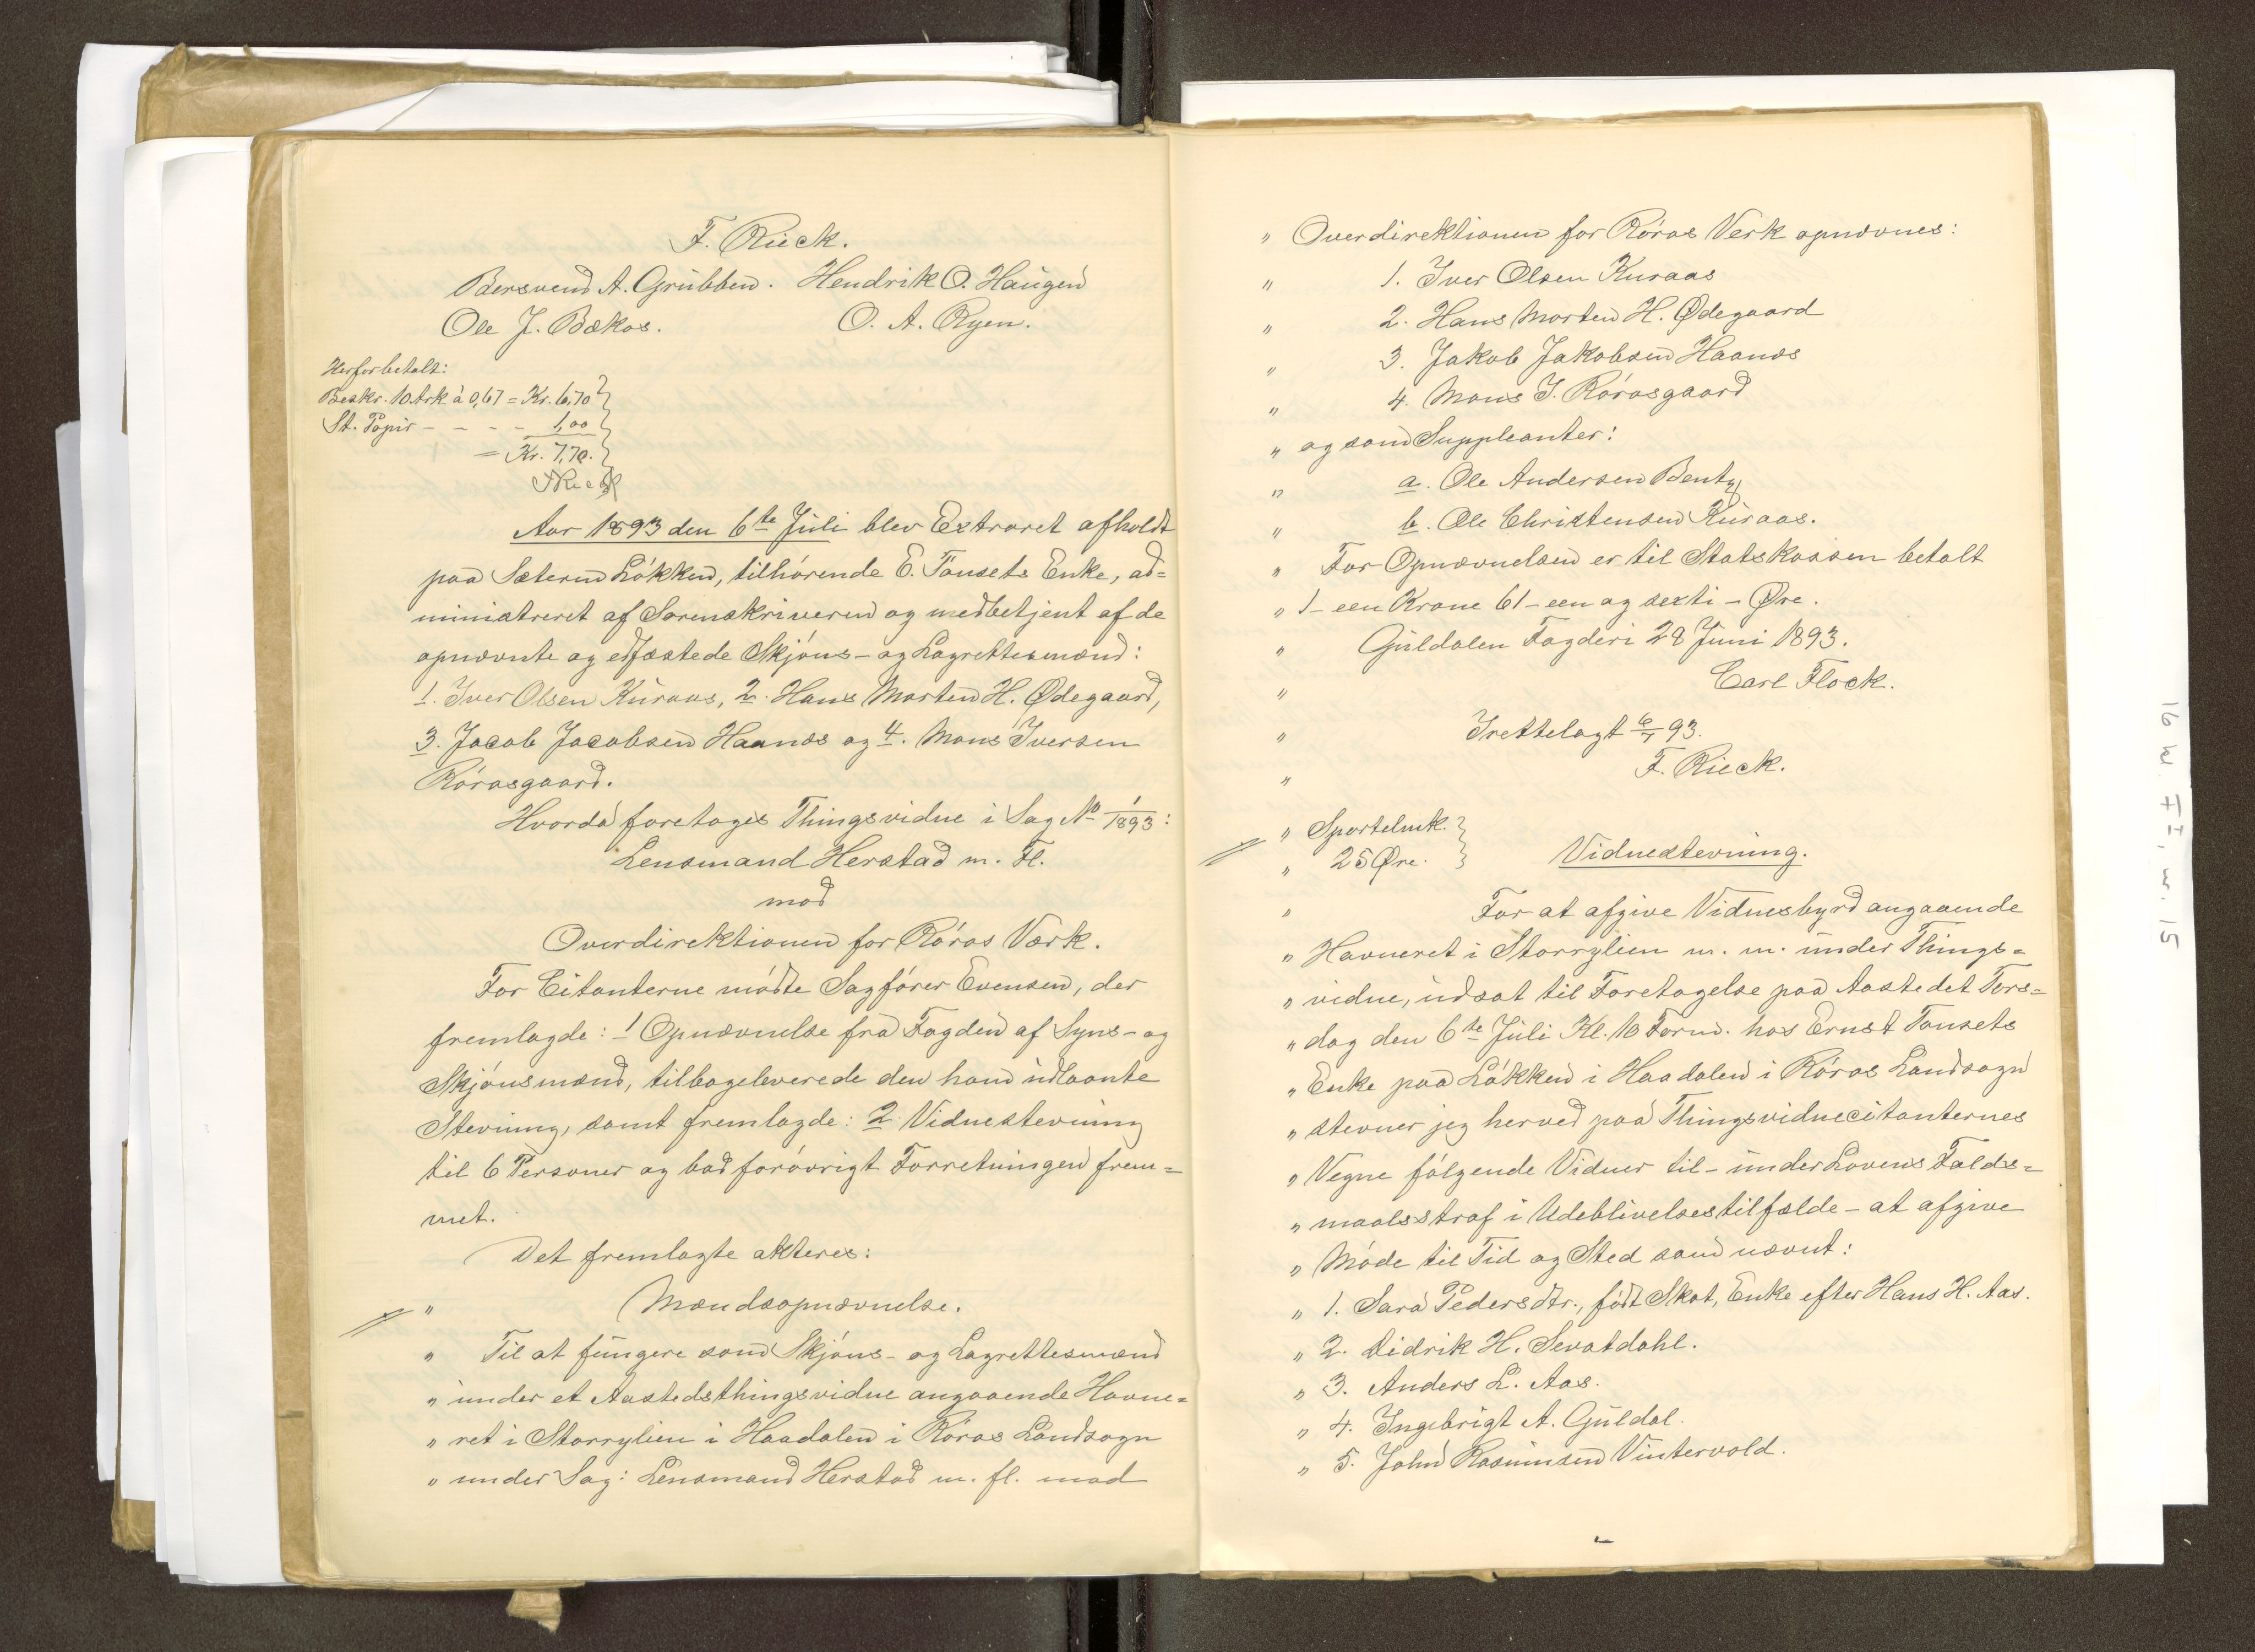 F. Rieck.
Bersvend A. Grubben. Hendrik O. Haugen
Ole J. Bækos. O. A. Ryen.
Herforbetalt:
Beskr. 10 Ark à 0,67 = Kr. 6,70
St. Papir - - - - 1,00
= Kr. 7,70.
FRieck
Aar 1893 den 6te Juli blev Extraret afholdt
paa Sæteren Løkken, tilhørende E. Tonsets Enke, ad=
ministreret af Sorenskriveren og medbetjent af de
opnævnte og edfæstede Skjøns- og Lagrettesmænd:
1. Iver Olsen Kuraas, 2. Hans Morten H. Ødegaard,
3. Jacob Jacobsen Haanæs og 4. Mons Iversen
Rørosgaard.
Hvorda foretoges Thingsvidne i Sag No 1/1893:
Lensmand Herstad m. Fl.
mod
Overdirektionen for Røros Værk.
For Citanterne mødte Sagfører Evensen, der
fremlagde: 1 Opnævnelse fra Fogden af Syns- og
Skjønsmænd, tilbageleverede den ham udlaante
Stevning, samt fremlagde: 2 Vidnestevning
til 6 Personer og bad forøvrigt Forretningen frem=
met.
Det fremlagte akteres:
" Mændsopnævnelse.
" Til at fungere som Skjøns- og Lagrettesmænd
" under et Aastedsthingsvidne angaaende Havne=
" ret i Storrylien i Haadalen i Røros Landsogn
" under Sag: Lensmand Herstad m. fl. mod
" Overdirektionen for Røros Verk opnævnes:
" 1. Iver Olsen Kuraas
" 2. Hans Morten H. Ødegaard
" 3. Jakob Jakobsen Haanæs
" 4. Mons I. Rørosgaard
" og som Suppleanter:
" a. Ole Andersen Bentz
" b. Ole Christensen Kuraas.
" For Opnævnelsen er til Statskassen betalt
" 1 - een Krone 61 - een og sexti - Øre.
" Guldalen Fogderi 28 Juni 1893.
" Carl Flock.
" Irettelagt 6/7 93.
" F. Rieck.
" Sportelmk.
" 25 Øre. Vidnestevning.
" For at afgive Vidnesbyrd angaaende
" Havneret i Storrylien m. m. under Things=
" vidne, udsat til Foretagelse paa Aastedet Tors=
" dag den 6te Juli Kl. 10 Form. hos Ernst Tonsets
" Enke paa Løkken i Haadalen i Røros Landsogn
" stevner jeg herved paa Thingsvidnecitanternes
" Vegne følgende Vidner til - under Lovens Falds=
" maalsstraf i Udeblivelsestilfælde - at afgive
" Møde til Tid og Sted som nævnt:
" 1. Sara Pedersdtr., født Skot, Enke efter Hans H. Aas.
" 2. Didrik H. Sevatdahl.
" 3. Anders L. Aas.
" 4. Ingebrigt A. Guldal.
" 5. John Rasmusen Vintervold.